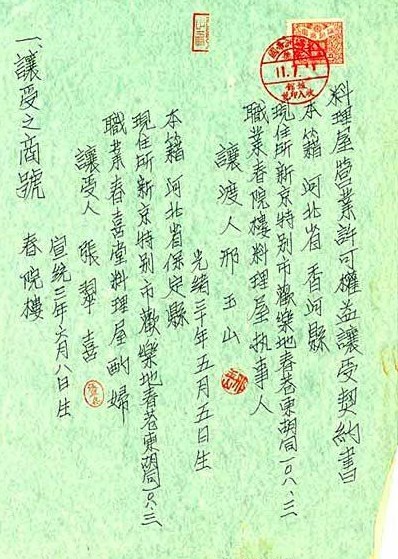 料理屋営業許可權益讓受契約書
本籍 河北省香河縣
現住所新京特別市歡樂地春苍東胡同一〇八、三
職業春院樓料理屋執事人
讓渡人 邢玉山
光緒三十年五月五日生
本籍 河北省保定縣
現住所新京特別市歡樂地春苍東胡同一〇八、三
職業春喜堂料理屋酌婦
讓受人 張翠喜
宣統三年六月八日生
一、讓受之商號 春院樓
11.7.